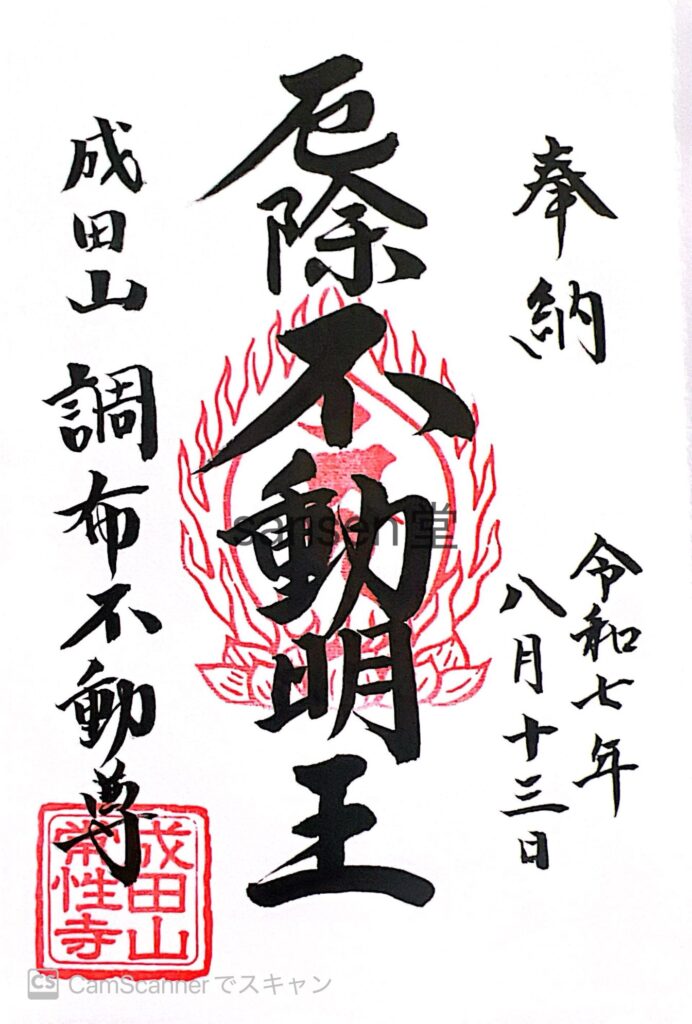 奉納
令和七年
八月十三日
厄除不動明王
成田山 調布不動尊
成田山
常性寺
sansen堂
CS CamScannerでスキャン